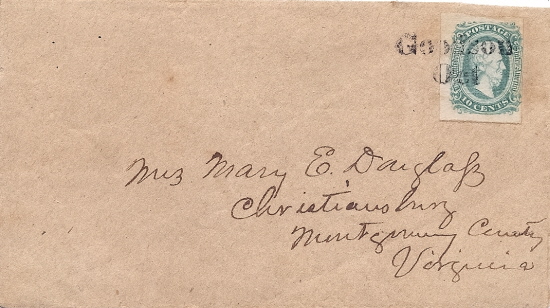 POSTAGE
Goodson
Oct
10 CENTS
Mrs Mary E. Douglass
Christiansburg
Montgomery County
Virginia